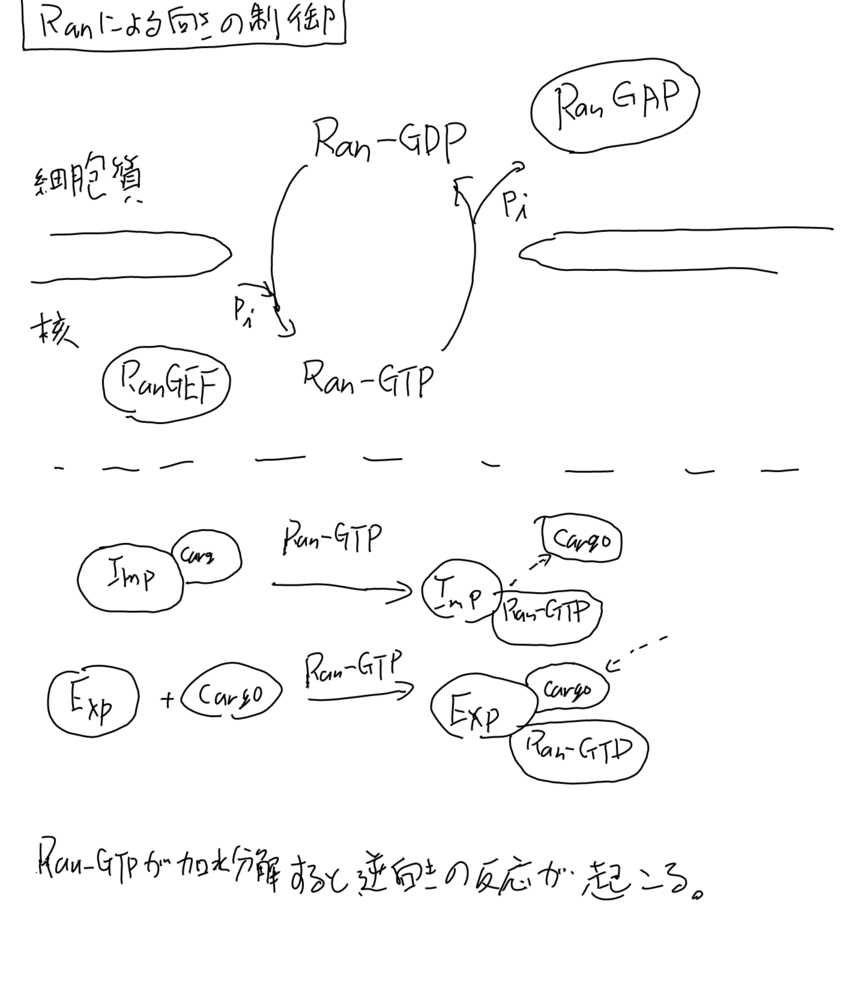 Ranによる向きの制御
RanGAP
Ran-GDP
細胞質
Pi
Pi
核
RanGEF
Ran-GTP
Imp
Cargo
Ran-GTP
Imp
Cargo
Ran-GTP
Exp
+
Cargo
Ran-GTP
Exp
Cargo
Ran-GTP
Ran-GTPが加水分解すると逆向きの反応が起こる。